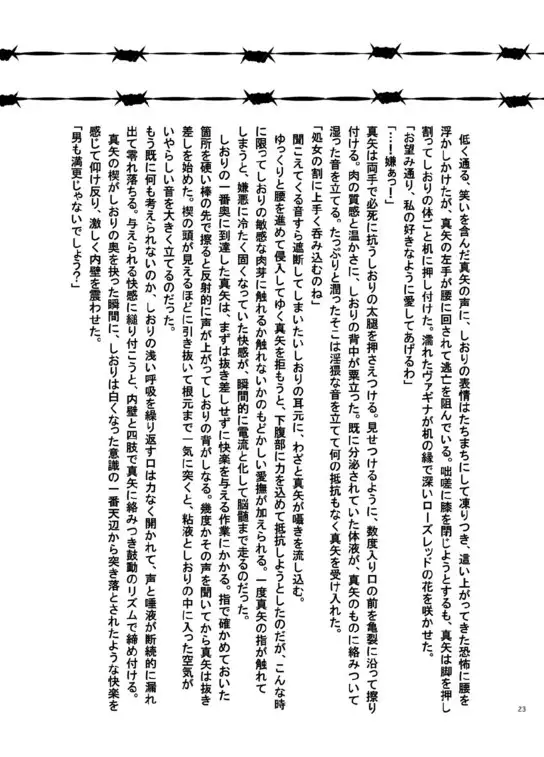 低く通る、笑いを含んだ真矢の声に、しおりの表情はたちまちにして凍りつき、這い上がってきた恐怖に腰を
浮かしかけたが、真矢の左手が腰に回されて逃亡を阻んでいる。咄嗟に膝を閉じようとするも、真矢は脚を押し
割ってしおりの体ごと机に押し付けた。濡れたヴァギナが机の縁で深いローズレッドの花を咲かせた。
「お望み通り、私の好きなように愛してあげるわ」
「…！嫌あっー！」
真矢は両手で必死に抗うしおりの太腿を押さえつける。見せつけるように、数度入り口の前を亀裂に沿って擦り
付ける。肉の質感と温かさに、しおりの背中が粟立つ。既に分泌されていた体液が、真矢のものに絡みついて
湿った音を立てる。たっぷりと潤ったそこは淫猥な音を立てて何の抵抗もなく真矢を受け入れた。
「処女の割に上手く呑み込むのね」
聞こえてくる音すら遮断してしまいたいしおりの耳元に、わざと真矢が囁きを流し込む。
ゆっくりと腰を進めて侵入してゆく真矢を拒もうと、下腹部に力を込めて抵抗しようとしたのだが、こんな時
に限ってしおりの敏感な肉芽に触れるか触れないかのもどかしい愛撫が加えられる。一度真矢の指が触れて
しまうと、嫌悪に冷たく固くなっていた快感が、瞬間的に電流と化して脳髄まで走るのだった。
しおりの一番奥に到達した真矢は、まずは抜き差しせずに快楽を与える作業にかかる。指で確かめておいた
箇所を硬い棒の先で擦ると反射的に声が上がってしおりの背がしなる。幾度かその声を聞いてから真矢は抜き
差しを始めた。楔の頭が見えるほどに引き抜いて根元まで一気に突くと、粘液としおりの中に入った空気が
いやらしい音を大きく立てるのだった。
もう既に何も考えられないのか、しおりの浅い呼吸を繰り返す口は力なく開かれて、声と唾液が断続的に漏れ
出て零れ落ちる。与えられる快感に縋り付こうと、内壁と四肢で真矢に絡みつき鼓動のリズムで締め付ける。
真矢の楔がしおりの奥を抉った瞬間に、しおりは白くなった意識の一番天辺から突き落とされたような快楽を
感じて仰け反り、激しく内壁を震わせた。
「男も満更じゃないでしょう？」
23